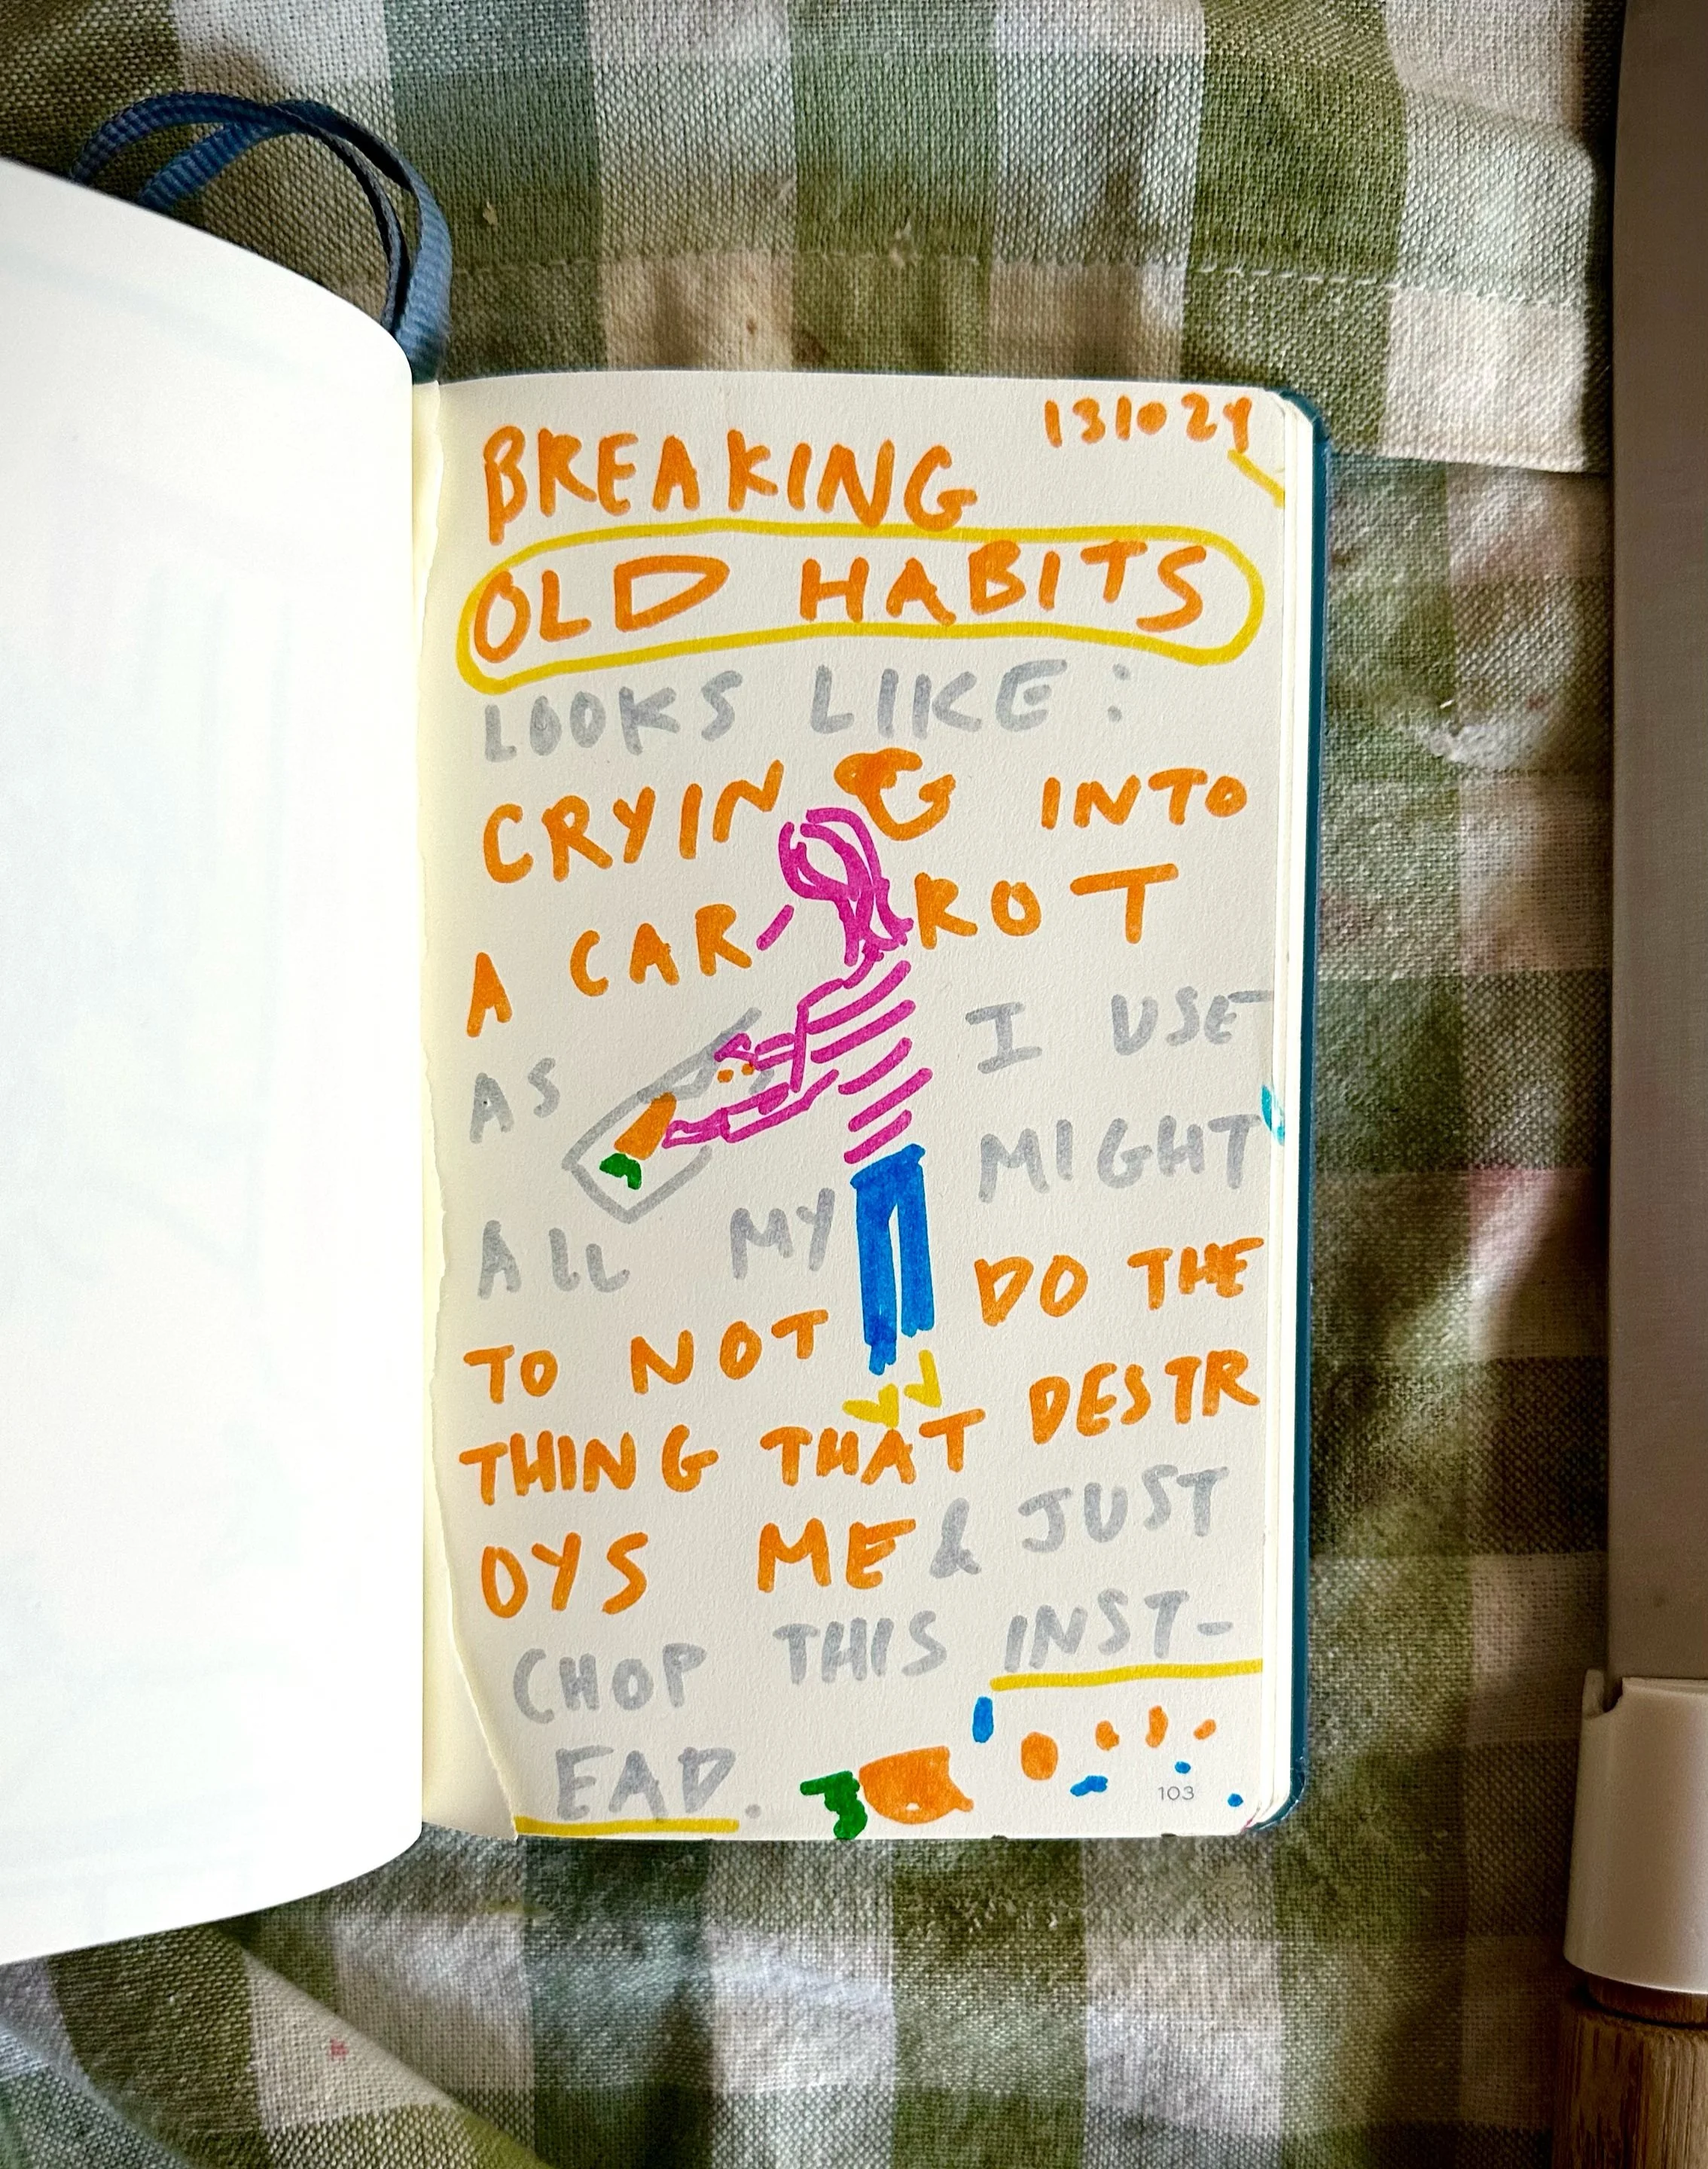 131024
BREAKING
OLD HABITS
LOOKS LIKE:
CRYING INTO
A CARROT
AS I USE
ALL MY MIGHT
TO NOT DO THE
THING THAT DESTR
OYS ME & JUST
CHOP THIS INST-
EAD.
103